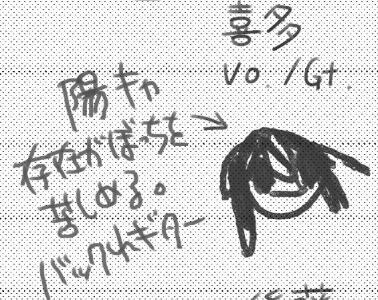 喜多
Vo./Gt.
陽キャ
存在がぼっちを
苦しめる。
バックれギター
後藤